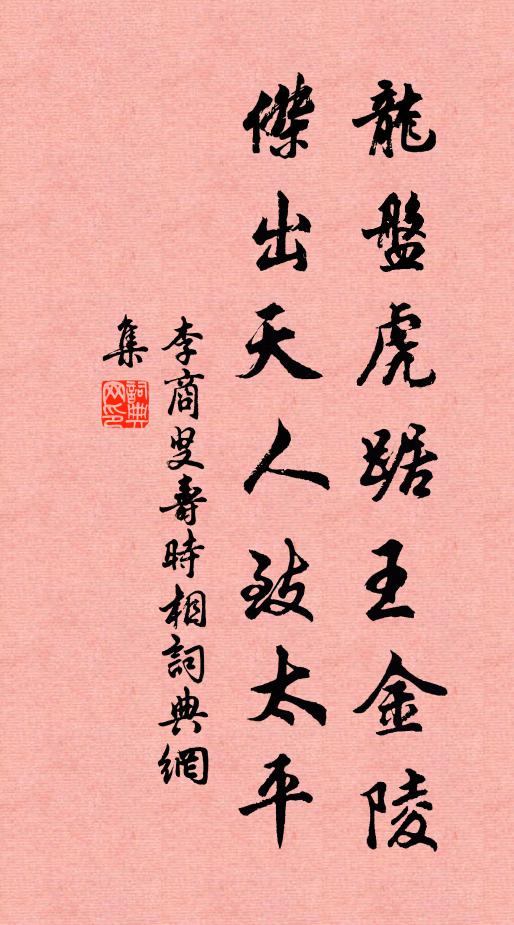 龍盤虎踞王金陵
傑出天人致太平
李商叟壽時相詞典網
集
詞典網印